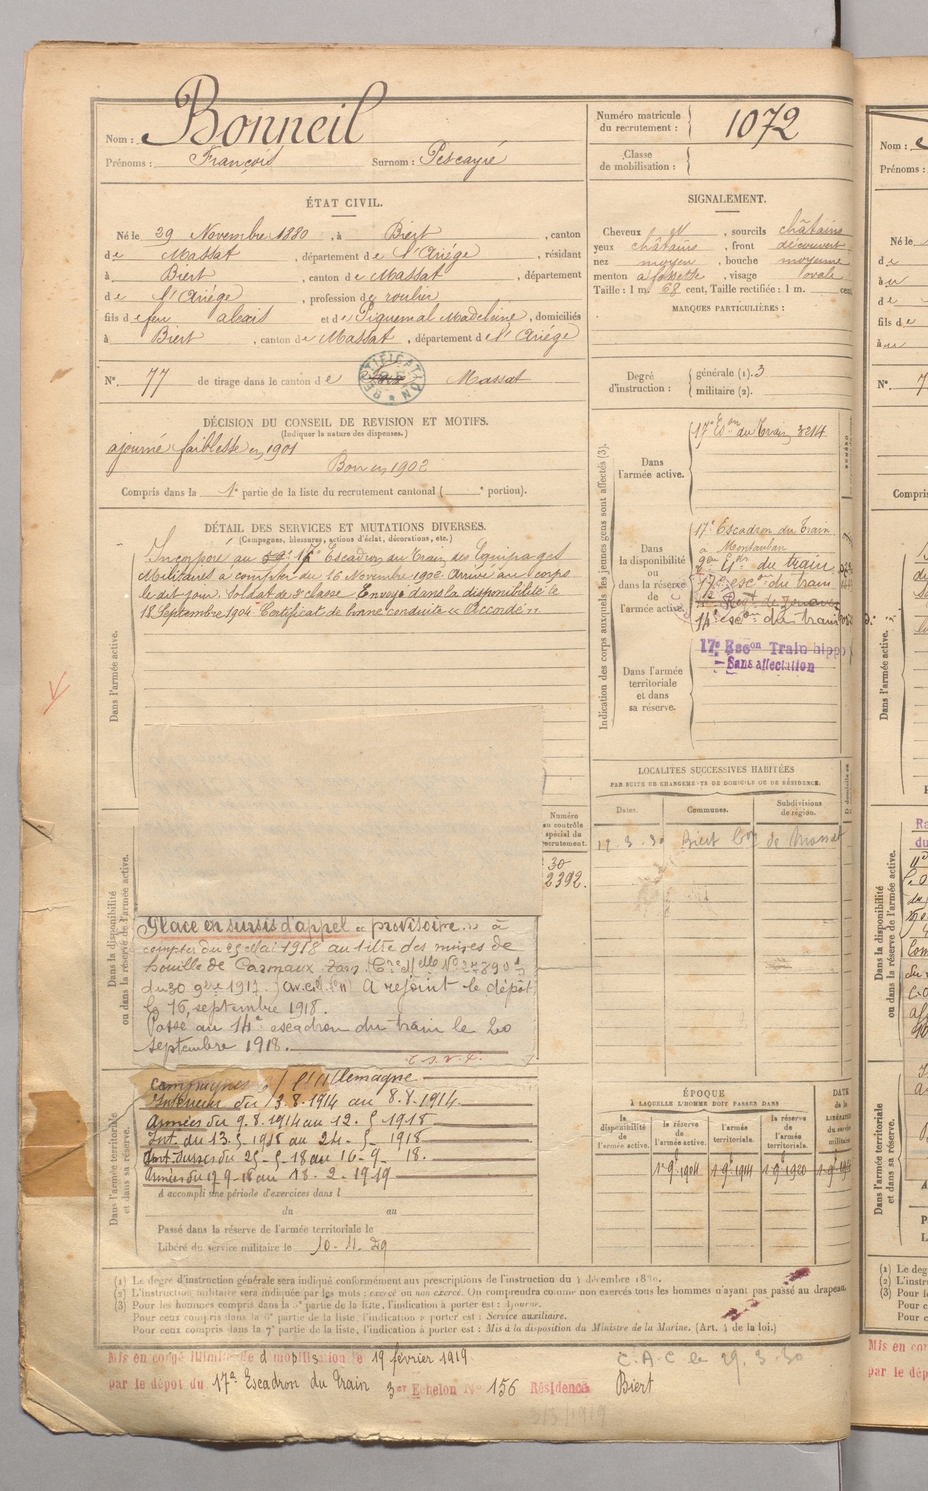 Nom : Bonneil
Prénoms : François Surnom : Pescayré
Numéro matricule du recrutement : 1072
Classe de mobilisation :
ÉTAT CIVIL.
Né le 29 Novembre 1880, à Biert, canton
de Massat, département de l'Ariége, résidant
à Biert, canton de Massat, département
de l'Ariége, profession de roulier
fils de feu alexis et de Piquemal Madeleine, domiciliés
à Biert, canton de Massat, département de l'Ariége
N° 77 de tirage dans le canton de Massat
RECTIFICATION
SIGNALEMENT.
Cheveux , sourcils châtains
yeux châtains, front découvert
nez moyen, bouche moyenne
menton à fossette, visage ovale
Taille : 1 m. 68 cent, Taille rectifiée : 1 m. cent
MARQUES PARTICULIÈRES :
Degré d'instruction : générale (1). 3
militaire (2).
DÉCISION DU CONSEIL DE REVISION ET MOTIFS.
(Indiquer la nature des dispenses.)
ajourné faiblesse en 1901
Bon en 1902
Compris dans la 1e partie de la liste du recrutement cantonal ( e portion).
DÉTAIL DES SERVICES ET MUTATIONS DIVERSES.
(Campagnes, blessures, actions d'éclat, décorations, etc.)
Incorporé au 17e Escadron du Train des Equipages
Militaires à compter du 16 Novembre 1902. Arrivé au corps
le dit jour. Soldat de 2e classe. Envoyé dans la disponibilité le
18 Septembre 1904. Certificat de bonne conduite "Accordé".
Dans l'armée active.
Indication des corps auxquels les jeunes gens sont affectés (3).
Dans l'armée active.
17e Eson du Train 3214
Dans la disponibilité ou dans la réserve de l'armée active.
17e Escadron du Train
à Montauban
du train
17e escon du train
Régt de Zouaves
14e escon du train
17e Escon Train hippo
Sans affectation
Dans l'armée territoriale et dans sa réserve.
LOCALITÉS SUCCESSIVES HABITÉES
PAR SUITE DE CHANGEMENTS DE DOMICILE OU DE RÉSIDENCE.
Dates. Communes. Subdivisions de région.
12.3.30 Biert Con de Massat
Numéro au contrôle spécial du recrutement.
30
2392.
Dans la disponibilité ou dans la réserve de l'armée active.
Place en sursis d'appel "provisoire" à
compter du 25 Mai 1918 au titre des mines de
houille de Carmaux Tarn
du 30 9bre 1917. A rejoint le dépôt
le 16, septembre 1918.
Passé au 14e escadron du train le 20
septembre 1918.
Dans l'armée territoriale et dans sa réserve.
Campagnes c/ l'Allemagne
Intérieur du 3.8.1914 au 8.8.1914
Armées du 9.8.1914 au 12.5.1918
Int. du 13.5.1918 au 24.5.1918
Int. sursis du 25.5.18 au 16.9.18.
Armées du 17.9.18 au 18.2.1919
A accompli une période d'exercices dans l
du au
Passé dans la réserve de l'armée territoriale le
Libéré du service militaire le 10.11.29
ÉPOQUE
À LAQUELLE L'HOMME DOIT PASSER DANS
la disponibilité de l'armée active. la réserve de l'armée active. l'armée territoriale. la réserve de l'armée territoriale. DATE de la LIBÉRATION du service militaire
(1) Le degré d'instruction générale sera indiqué conformément aux prescriptions de l'instruction du 4 décembre
(2) L'instruction militaire sera indiquée par les mots : exercé ou non exercé. On comprendra comme non exercés tous les hommes n'ayant pas passé au drapeau.
(3) Pour les hommes compris dans la 5e partie de la liste, l'indication à porter est : Ajourné.
Pour ceux compris dans la 6e partie de la liste, l'indication à porter est : Service auxiliaire.
Pour ceux compris dans la 7e partie de la liste, l'indication à porter est : Mis à la disposition du Ministre de la Marine. (Art. 4 de la loi.)
Mis en congé illimité de démobilisation le 19 février 1919
par le dépôt du 17e Escadron du Train 3er Echelon N° 156 Résidence Biert
C.A.C le 29.3.30